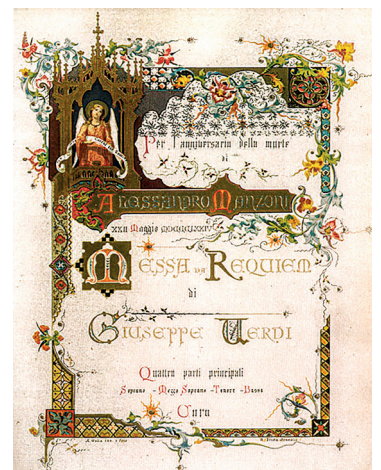 Per l'anniversario della morte
di
Alessandro Manzoni
XXII Maggio MDCCCLXXIV
Messa da Requiem
di
Giuseppe Verdi
Quattro parti principali
Soprano - Mezzo Soprano - Tenore - Basso